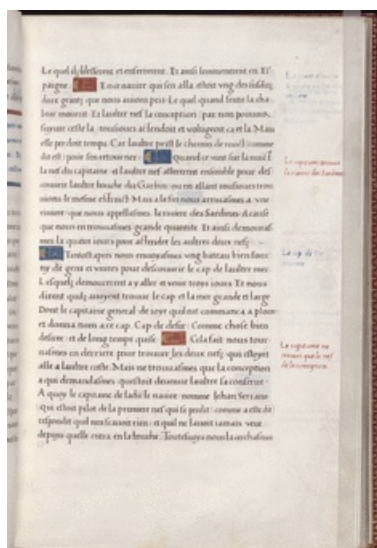 Le quel ilz desferrent et enferrerent. Et ainsi lemmenerent en Es
paigne. Et ceste navire qui sen alla estoit vng des
deux geans que nous auions pris. Le quel quand sentit la cha
leur mourut. Et laultre nef la conception par non pouuoir
suyure ceste la tousiours attendoit et voltigeoit ca et la. Mais
elle perdoit temps. Car laultre print le chemin de nuict comme
dit est pour sen retourner Quand ce vint sur la nuict
la nef du capitaine et laultre nef allerent ensemble pour des
couurir laultre bouche du Garbin ou en allant tousiours trou
uions le mesme estroict. Mais a la fin nous arriuasmes a vne
riuiere que nous appellasmes la riuiere des Sardines. A cause
que nous en trouuasmes grande quantite. Et ainsi demouras
mes la quatre iours pour attendre les aultres deux nefz
Tantost apres nous enuoyasmes vng bateau bien four
ny de gens et viures pour descouurir le cap de laultre mer.
Lesquelz demourerent a y aller et venir troys iours. Et nous
dirent quilz auoyent trouue le cap et la mer grande et large
Dont le capitaine general de ioye quil eut commanca a plorer
et donna nom a ce cap. Cap de desir. Comme chose bien
desiree et de long temps quise Cela fait nous tour
nasmes en derriere pour trouuer les deux nefz qui estoyent
alle a laultre coste. Mais ne trouuasmes que la conception
a qui demandasmes questoit deuenue laultre sa consorte.
A quoy le capitaine de ladicte nauire nomme Jehan Serrano
Qui estoit pilot de la premiere nef qui se perdit comme a este dit
respondit quil nen scauoit rien et quil ne lauoit iamais veue
depuys quelle entra en la bouche. Toutesuoys nous la cerchasmes
Le cap de